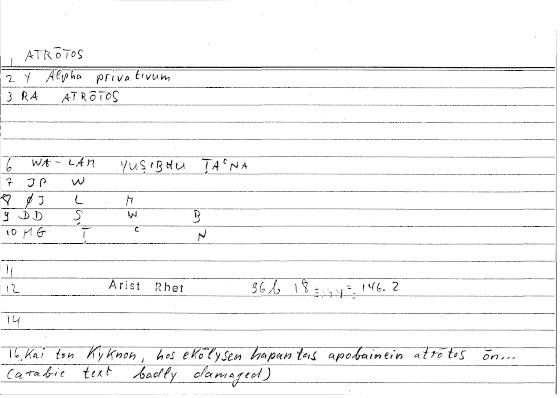 1 ATRŌTOS
2 Y Alpha privativum
3 RA ATRŌTOS
6 WA-LAM YUṢIBHU ṬAᶜNA
7 JP W
8 ØJ L M
9 DD Ṣ W B
10 MG Ṭ ᶜ N
11
12 Arist Rhet 96b 18 = 146.2
14
16. Kai ton Kyknon, hos ekōlysen hapantas apobainein atrōtos ōn...
(arabic text badly damaged)